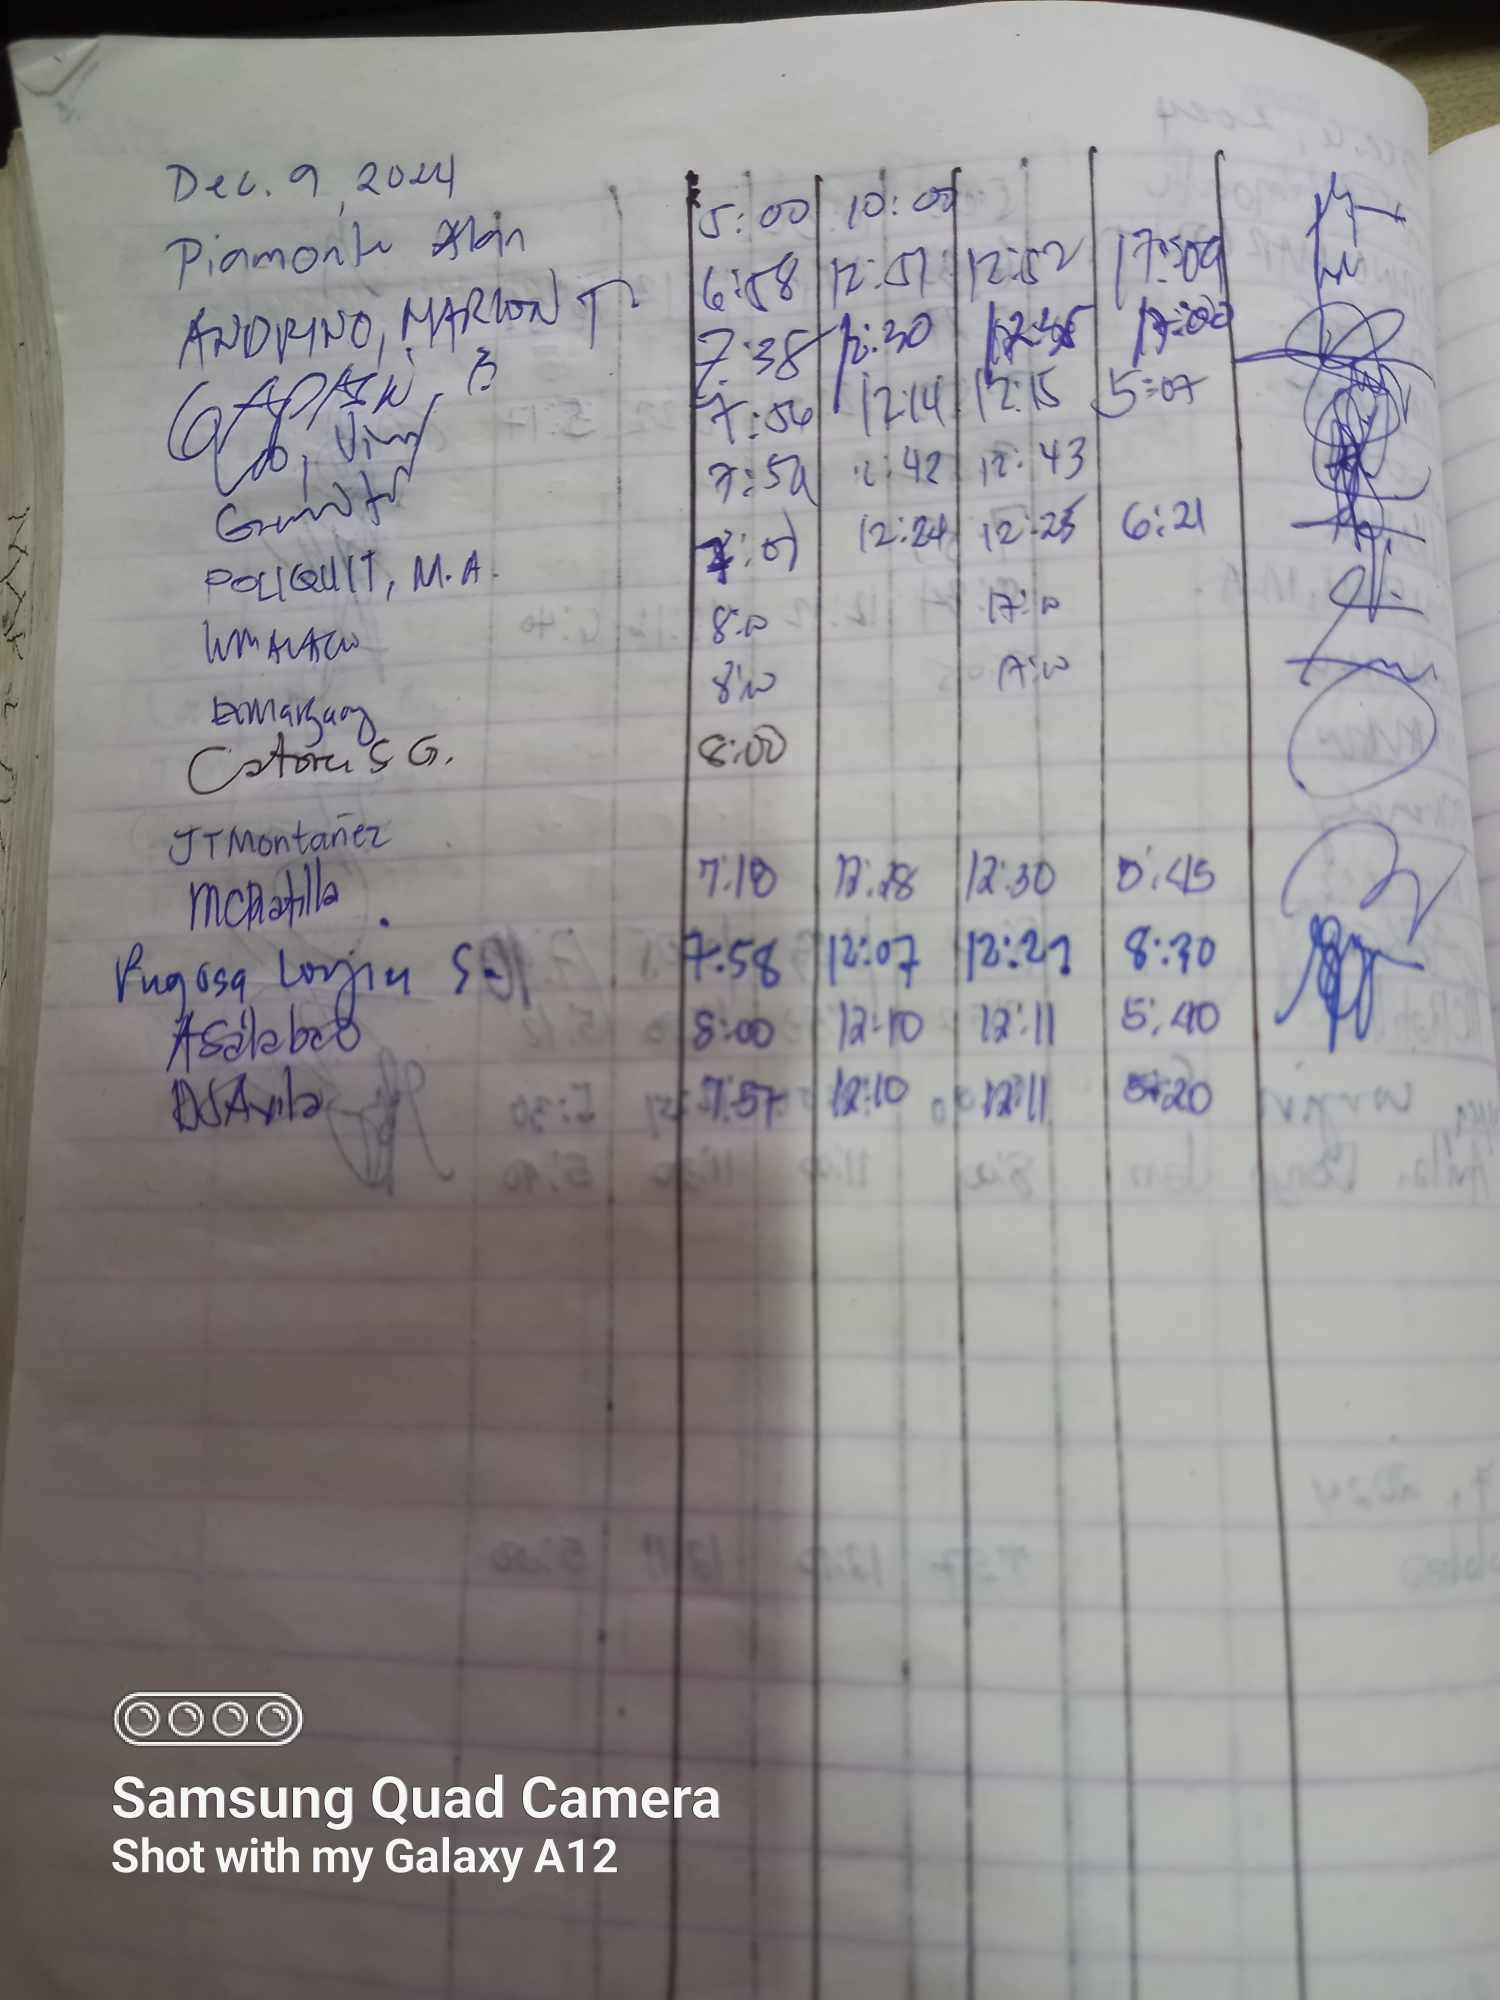 Dec. 9, 2024
Piamonte Alan 5:00 10:00
ANDRINO, MARLON T. 6:58 12:51 12:52 17:09
GAPASIN, B 7:38 12:30 12:35 17:00
Loo, 7:56 12:14 12:15 5:07
7:59 12:42 12:43
POLIQUIT, M.A. 12:24 12:25 6:21
8:00 17:00
8:00 17:00
G. 8:00
JTMontañez
MCRatilla 7:18 12:28 12:30 5:45
Pugosa Lorjin S. 7:58 12:07 12:27 8:30
ASalabao 8:00 12:10 12:11 5:40
DJAvila 7:57 12:10 12:11 5:20
Samsung Quad Camera
Shot with my Galaxy A12